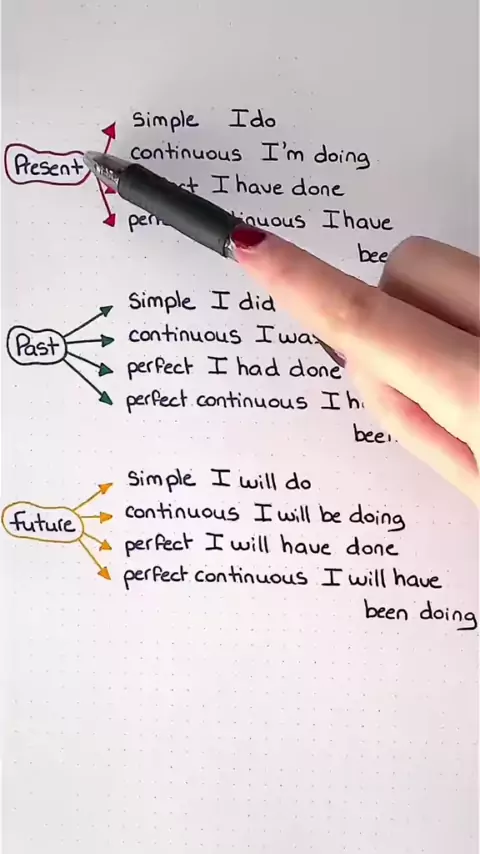 Present
simple I do
continuous I'm doing
I have done
I have
Past
simple I did
continuous I was
perfect I had done
perfect continuous I
future
simple I will do
continuous I will be doing
perfect I will have done
perfect continuous I will have
been doing